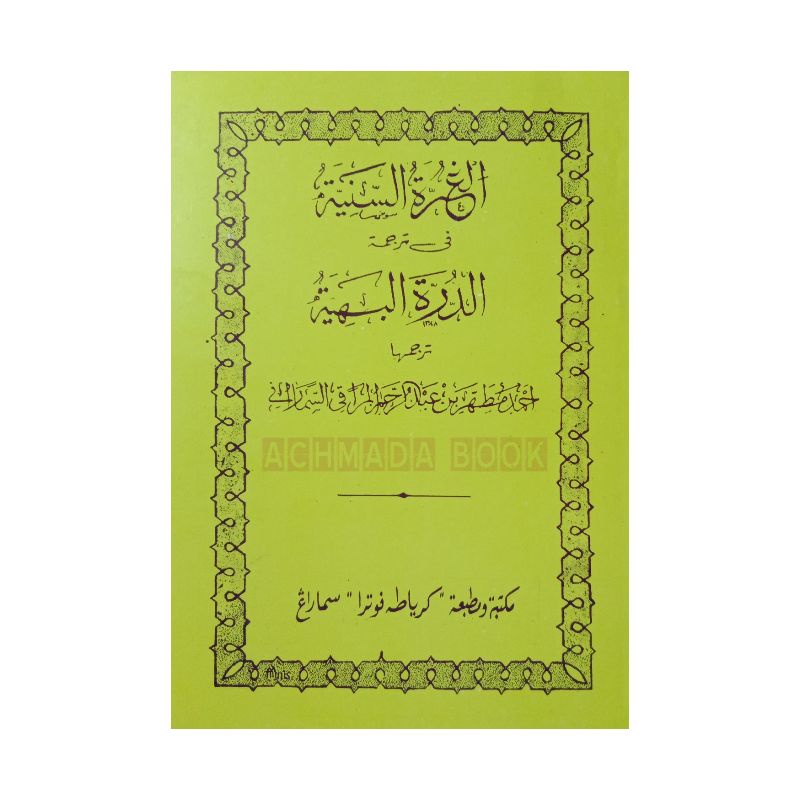 الغُرَّةُ السَّنِيَّةُ
فى ترجمة
الدُّرَّةِ الْبَهِيَّةِ
١٣٤٨
ترجمها
احمد مطهر بن عبد الرحمن المراقي السماراني
ACHMADA BOOK
مكتبة ومطبعة "كرياطه فوترا" سماراڠ